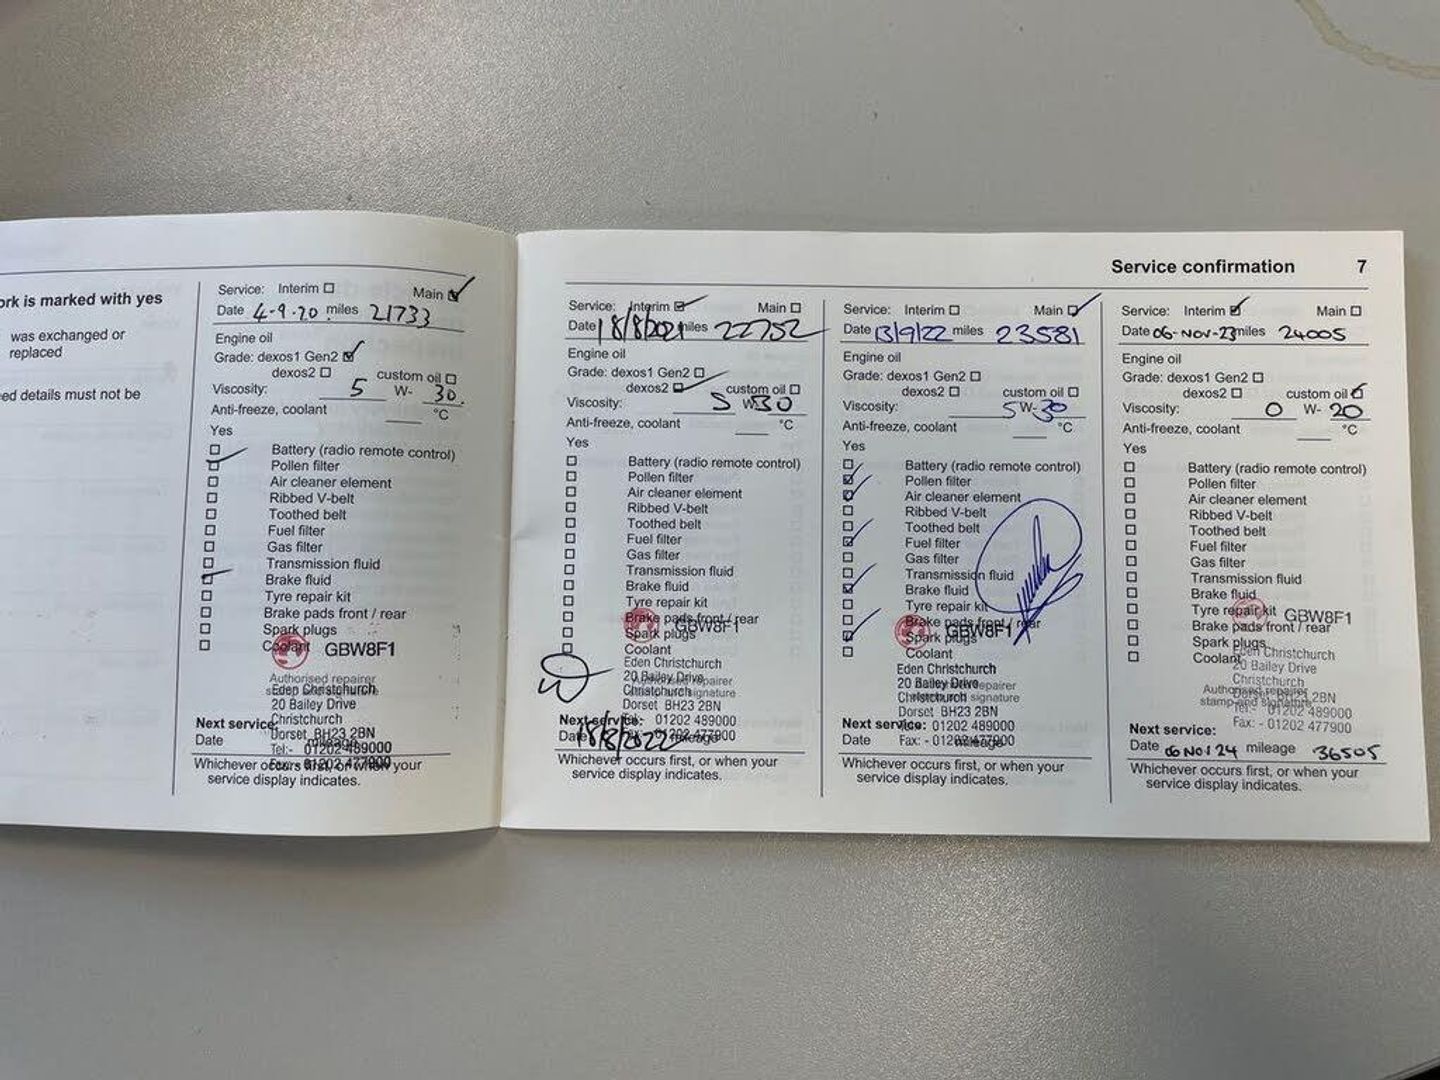 Service confirmation 7
ork is marked with yes
was exchanged or
replaced
ed details must not be
Service: Interim Main
Date 4-9-20 miles 21733
Engine oil
Grade: dexos1 Gen2
dexos2 custom oil
Viscosity: 5 W- 30
Anti-freeze, coolant °C
Yes
Battery (radio remote control)
Pollen filter
Air cleaner element
Ribbed V-belt
Toothed belt
Fuel filter
Gas filter
Transmission fluid
Brake fluid
Tyre repair kit
Brake pads front / rear
Spark plugs
Coolant
GBW8F1
Authorised repairer
Eden Christchurch
20 Bailey Drive
Christchurch
Dorset BH23 2BN
Tel:- 01202 489000
Fax: - 01202 477900
Next service:
Date mileage
Whichever occurs first, or when your
service display indicates.
Service: Interim Main
Date 18/8/2021 miles 22752
Engine oil
Grade: dexos1 Gen2
dexos2 custom oil
Viscosity: 5 W- 30
Anti-freeze, coolant °C
Yes
Battery (radio remote control)
Pollen filter
Air cleaner element
Ribbed V-belt
Toothed belt
Fuel filter
Gas filter
Transmission fluid
Brake fluid
Tyre repair kit
Brake pads front / rear
Spark plugs
Coolant
GBW8F1
Eden Christchurch
20 Bailey Drive
Authorised repairer
Christchurch
signature
Dorset BH23 2BN
Tel:- 01202 489000
Fax: - 01202 477900
Next service:
Date 18/8/2022 mileage
Whichever occurs first, or when your
service display indicates.
Service: Interim Main
Date 13/9/22 miles 23581
Engine oil
Grade: dexos1 Gen2
dexos2 custom oil
Viscosity: 5 W- 30
Anti-freeze, coolant °C
Yes
Battery (radio remote control)
Pollen filter
Air cleaner element
Ribbed V-belt
Toothed belt
Fuel filter
Gas filter
Transmission fluid
Brake fluid
Tyre repair kit
Brake pads front / rear
Spark plugs
Coolant
GBW8F1
Eden Christchurch
20 Bailey Drive
Authorised repairer
Christchurch
signature
Dorset BH23 2BN
Tel:- 01202 489000
Fax: - 01202 477900
Next service:
Date mileage
Whichever occurs first, or when your
service display indicates.
Service: Interim Main
Date 06-NOV-23 miles 24005
Engine oil
Grade: dexos1 Gen2
dexos2 custom oil
Viscosity: 0 W- 20
Anti-freeze, coolant °C
Yes
Battery (radio remote control)
Pollen filter
Air cleaner element
Ribbed V-belt
Toothed belt
Fuel filter
Gas filter
Transmission fluid
Brake fluid
Tyre repair kit
Brake pads front / rear
Spark plugs
Coolant
GBW8F1
Eden Christchurch
20 Bailey Drive
Christchurch
Authorised repairer
stamp and signature
Dorset BH23 2BN
Tel:- 01202 489000
Fax: - 01202 477900
Next service:
Date 06 NOV 24 mileage 36505
Whichever occurs first, or when your
service display indicates.